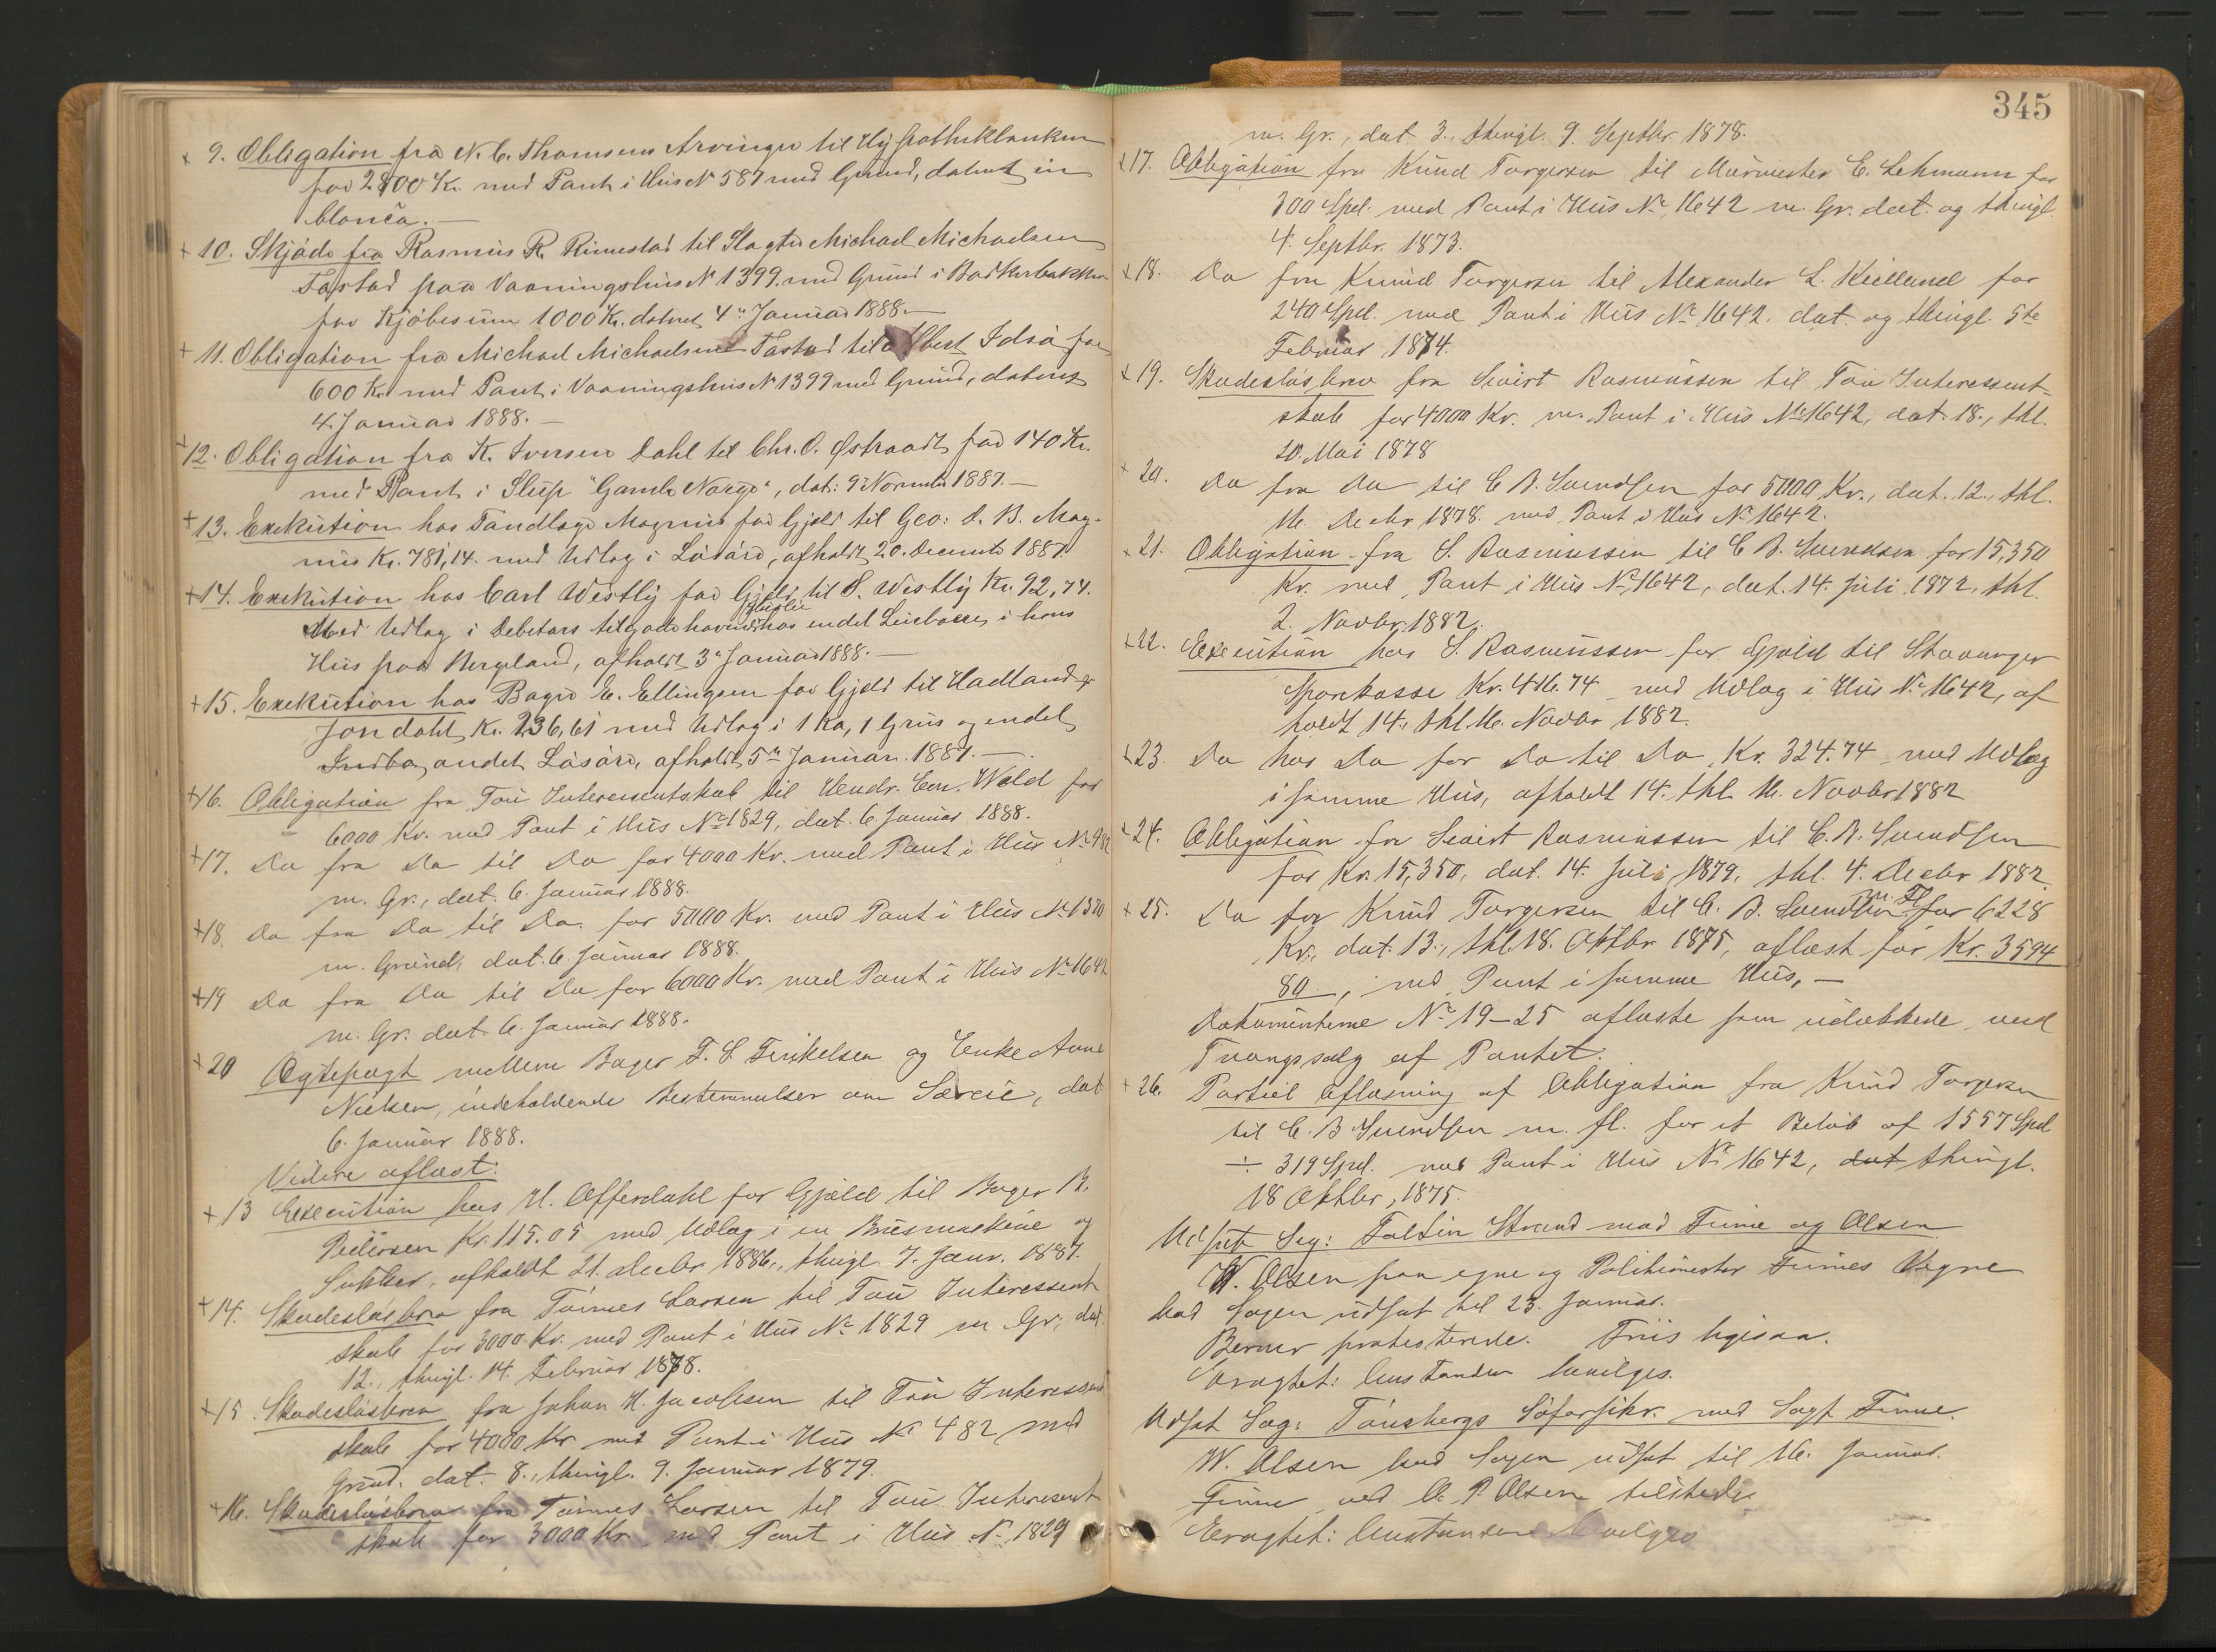 + 9. Obligation fra N. C. Thomsens Arvinger til Hypothekbanken
for 2800 Kr. med Pant i Hus N 587 med Grund, datert in
blanca. —
+ 10. Skjøde fra Rasmus R. Rimestad til Slagter Michael Michaelsen
Tastad paa Vaaningshus N 1399 med Grund i Bødkerbakken
for Kjøbesum 1000 Kr. datert 4de Januar 1888. —
+ 11. Obligation fra Michael Michaelsen Tastad til Albert Idsø for
600 Kr. med Pant i Vaaningshus N 1399 med Grund, datert
4. Januar 1888. —
+ 12. Obligation fra K. Iversen Dahl til Chr. O. Østraadt for 140 Kr.
med Pant i Slup "Gamle Norge", dat: 9 November 1887. —
+ 13. Exekution hos Tandlæge Magnus for Gjeld til Geo: d. B. Mag-
nus Kr. 781,14. med Udlæg i Løsøre, afholdt 20. December 1887.
+ 14. Exekution hos Carl Westly for Gjeld til S. Westly Kr. 92,74.
Med Udlæg i Debitors tilgodehavende hos endel Leieboere i hans
Hus paa Bergeland, afholdt 3de Januar 1888. —
+ 15. Exekution hos Bager E. Ellingsen for Gjeld til Hadland &
Jondahl Kr. 236,61 med Udlæg i 1 Ko, 1 Gris og endel
Indbo, andet Løsøre, afholdt 5te Januar. 1887. —
+ 16. Obligation fra Tou Interessentskab til Hendr. Em. Wold for
6000 Kr. med Pant i Hus No 1829, dat. 6 Januar 1888.
+ 17. Do fra Do til Do for 4000 Kr. med Pant i Hus No 482
m. Gr., dat. 6. Januar 1888.
+ 18. Do fra Do til Do. for 5000 Kr. med Pant i Hus No 1520
m. Grund, dat. 6. Januar 1888.
+ 19 Do fra Do til Do for 6000 Kr. med Pant i Hus No 1642
m. Gr. dat. 6. Januar 1888.
+ 20 Ægtepagt mellem Bager F. S. Finkelsen og Enke Anne
Nielsen, indeholdende Bestemmelser om Særeie, dat
6. Januar 1888.
Videre aflæst:
+ 13 Execution hos H. Offerdahl for Gjæld til Bager B.
Pedersen Kr. 115.05 med Udlæg i en Brusmaskine og
Sukker, afholdt 21. Decbr 1886, thingl. 7. Janr. 1887.
+ 14. Skadesløsbrev fra Tønnes Larsen til Tou Interessent
skab for 3000 Kr. med Pant i Hus No 1829 m Gr., dat.
12., thingl. 14. Februar 1878.
+ 15. Skadesløsbrev fra Johan H. Jacobsen til Tou Interessent
skab for 4000 Kr med Pant i Hus No 482 med
Grund. dat. 8., thingl. 9. Januar 1879.
+ 16. Skadesløsbrev fra Tønnes Larsen til Tou Interessent
skab for 3000 Kr. med Pant i Hus No 1829
345
m. Gr., dat 3., thingl. 9. Septbr. 1878.
+ 17. Obligation fra Knud Torgersen til Murmester E. Lehmann for
300 Spd. med Pant i Hus No 1642 m. Gr. dat. og thingl.
4. Septbr. 1873.
+ 18. Do fra Knud Torgersen til Alexander L. Kielland for
240 Spd. med Pant i Hus No 1642. dat. og thingl. 5te
Februar 1874.
+ 19. Skadesløsbrev fra Sivert Rasmussen til Tou Interessent-
skab for 4000 Kr. m. Pant i Hus No 1642, dat. 18., thl.
20. Mai 1878
+ 20. Do fra Do til C. B. Svendsen for 5000 Kr., dat. 12., thl.
16. Decbr 1878. med Pant i Hus No 1642.
+ 21. Obligation fra S. Rasmussen til C. B. Svendsen for 15,350
Kr. med Pant i Hus No 1642, dat. 14. Juli 1872, thl.
2. Novbr. 1882.
+ 22. Execution hos S. Rasmussen for Gjæld til Stavanger
Sparekasse Kr. 416.74 med Udlæg i Hus No 1642, af
holdt 14., thl. 16. Novbr 1882.
+ 23. Do hos Do for Do til Do Kr. 324.74 med Udlæg
i samme Hus, afholdt 14. thl. 16. Novbr 1882
+ 24. Obligation fra Sivert Rasmussen til C. B. Svendsen
for Kr. 15,350, dat. 14. Juli 1879, thl. 4. Decbr 1882.
+ 25. Do fra Knud Torgersen til C. B. Svendsen m. Fl for 6228
Kr., dat. 13., thl. 18. Oktbr 1875, aflæst for Kr. 3594
80, med Pant i samme Hus, —
Dokumenterne No 19–25 aflæste som udækkede ved
Tvangssalg af Pantet.
+ 26. Partiel aflæsning af Obligation fra Knud Torgersen
til C. B Svendsen m. fl. for et Beløb af 1557 Spd
÷ 319 Spd. med Pant i Hus No 1642, dat thingl.
18 Oktbr. 1875.
Udsat Sag: Faltin Strand mod Finne og Olsen
W. Olsen paa egne og Politimester Finnes Vegne
bad Sagen udsat til 23. Januar.
Berner protesterede. Friis ligesaa.
Eragtet: Anstanden bevilges.
Udsat Sag: Tønsbergs Søforsikr. mod Sagf. Finne.
W. Olsen bad Sagen udsat til 16. Januar.
Finne ved O. P. Olsen tilstede.
Eragtet: Anstanden bevilges